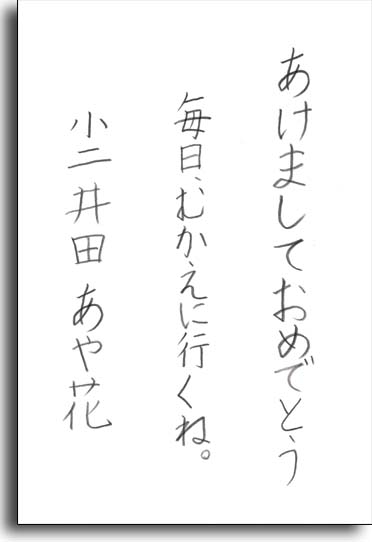 あけましておめでとう
毎日、むかえに行くね。
小二 井田 あや花